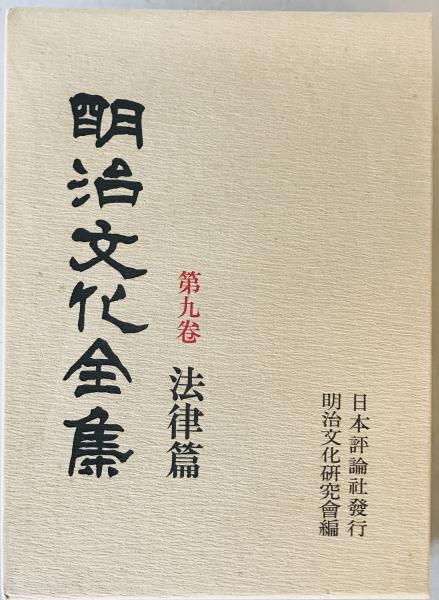 明治文化全集
第九卷
法律篇
日本評論社發行
明治文化研究會編